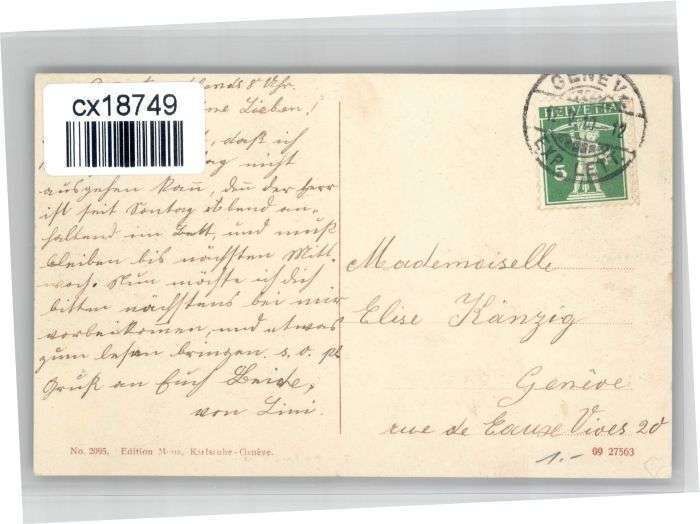 abends 8 Uhr.
cx18749
Lieben!
daß ich
nicht
ausgehen kan, den der Herr
ist seit Sontag Abend an-
haltend im Bett, und muß
bleiben bis nächsten Mitt-
woch. Nun möchte ich dich
bitten nächstens bei mir
vorbeikommen, und etwas
zum lesen bringen. s. v. pl
Gruß an Euch Beide,
von Lini.
GENÈVE
HELVETIA
5
Mademoiselle
Elise Känzig
Genève
rue de Eause Vives 20
1.-
No. 2095. Edition Karlsruhe-Genève.
09 27563